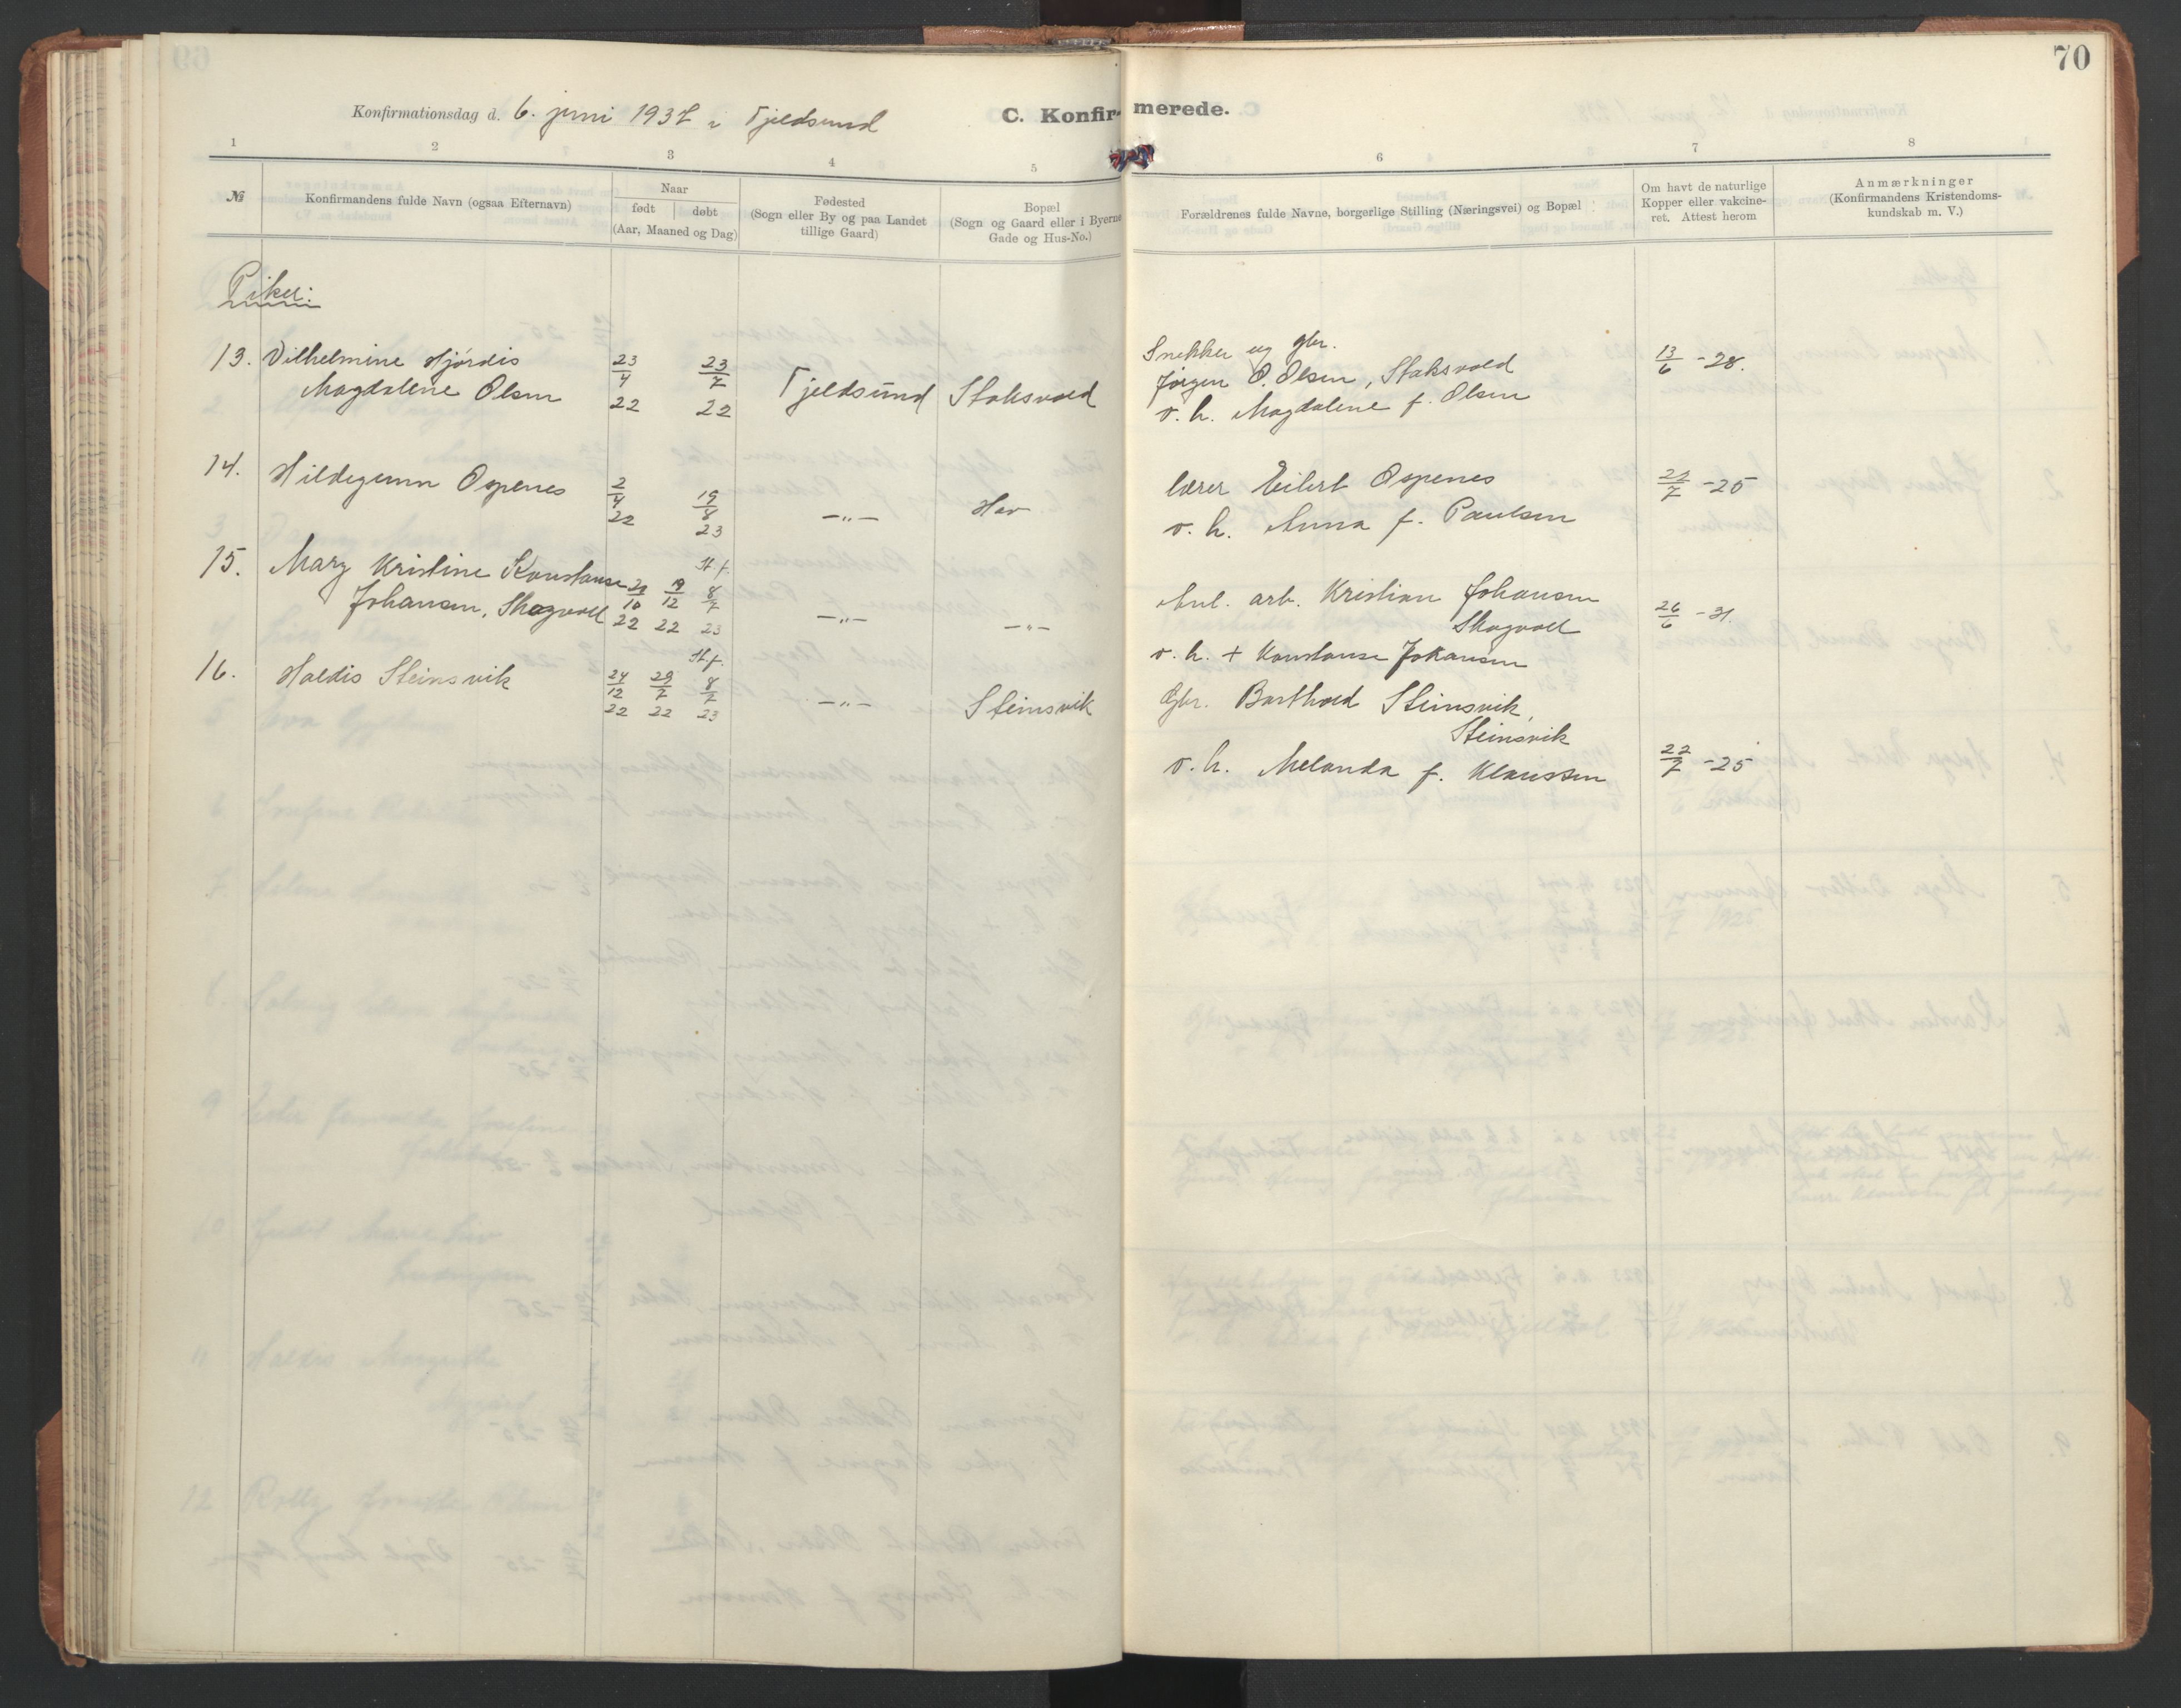 70
Konfirmationsdag d. 6. juni 1937 i Tjeldsund
C. Konfirmerede.
1 2 3 4 5 6 7 8
№
Konfirmandens fulde Navn (ogsaa Efternavn)
Naar
født | døbt
(Aar, Maaned og Dag)
Fødested
(Sogn eller By og paa Landet
tillige Gaard)
Bopæl
(Sogn og Gaard eller i Byerne
Gade og Hus-No.)
Forældrenes fulde Navne, borgerlige Stilling (Næringsvei) og Bopæl
Om havt de naturlige
Kopper eller vakcine-
ret. Attest herom
Anmærkninger
(Konfirmandens Kristendoms-
kundskab m. V.)
Piker:
13. Vilhelmine Hjördis
Magdalene Olsen
23/4 22
23/7 22
Tjeldsund Staksvold
Snekker og gbr.
Jørgen O. Olsen, Staksvold
v. h. Magdalene f. Olsen
13/6 -28.
14. Hildegunn Ospenes
2/4 22
19/8 23
—"— Hov
lærer Eilert Ospenes
v. h. Anna f. Paulsen
-25
15. Mary Kristine Konstanse
Johansen, Skogvoll
10 22
19/12 22
St f. 8/7 23
—"— —"—
Anl. arb. Kristian Johansen
Skogvoll
v. h. + Konstanse Johansen
26/6 -31.
16. Haldis Steinsvik
24/12 22
29/7 22
St f. 8/7 23
—"— Steinsvik
Gbr. Barthold Steinsvik,
Steinsvik
v. h. Melanda f. Klaussen
22/7 -25